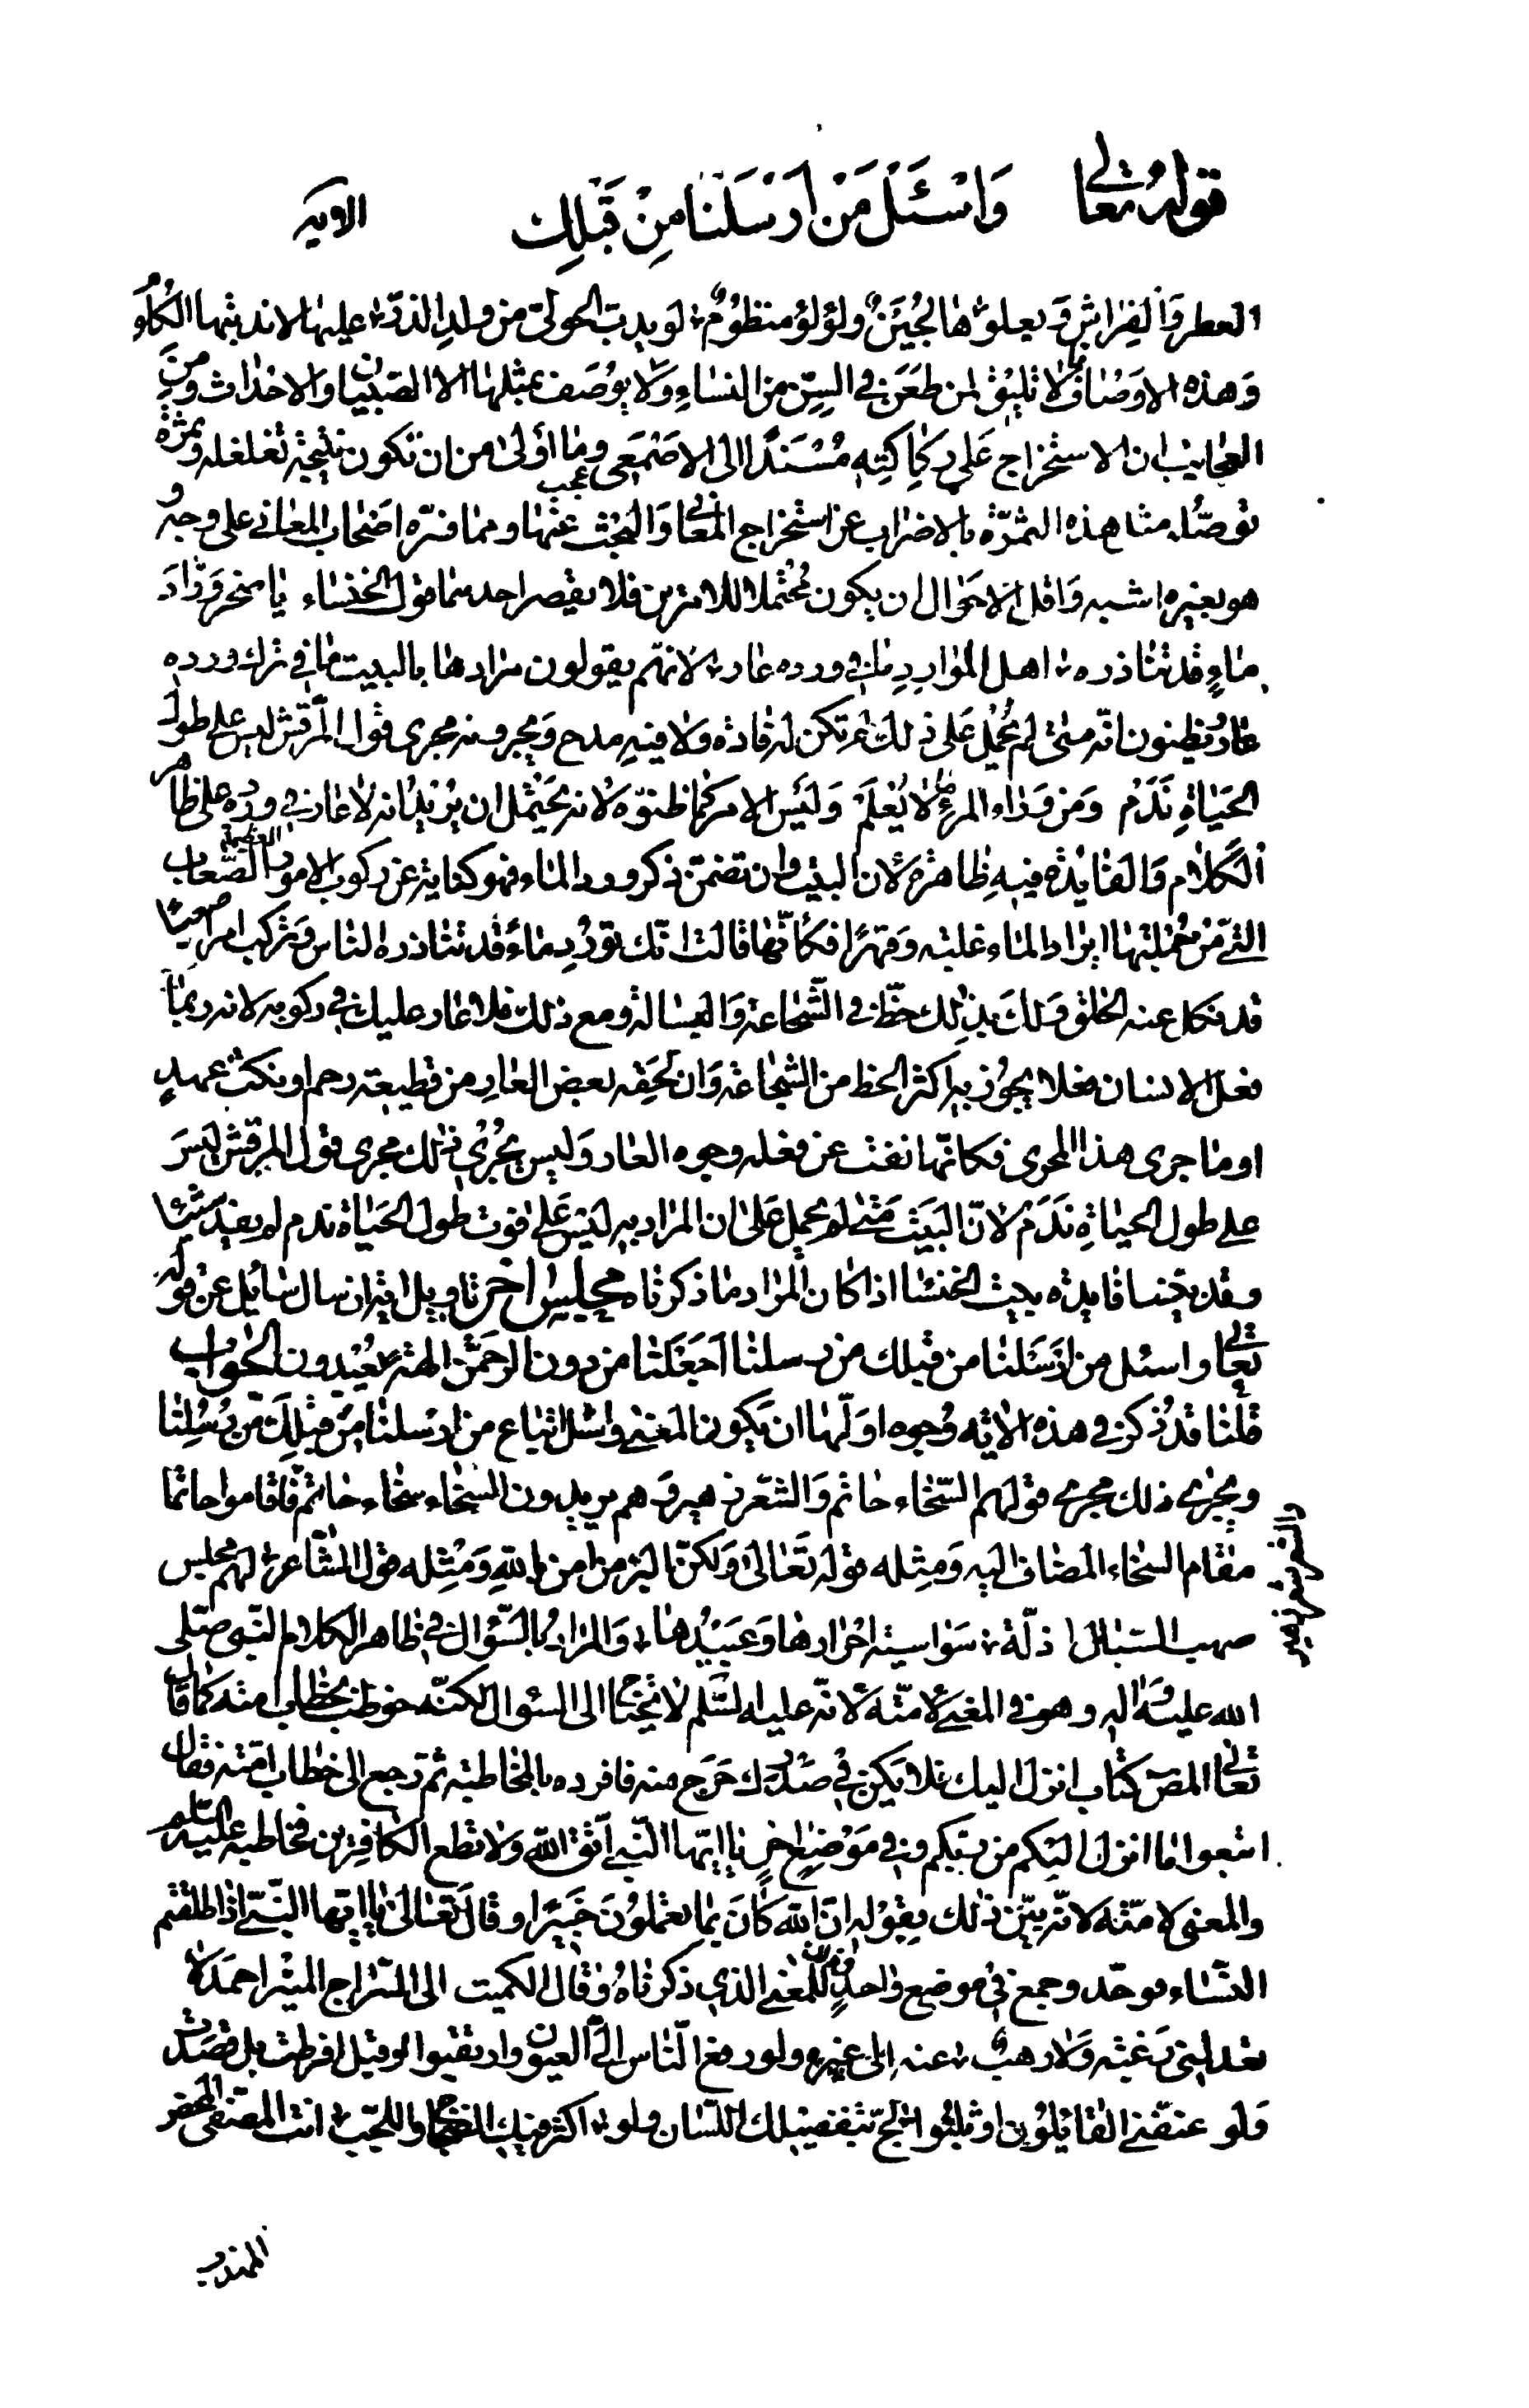 قوله تعالى وَاسْئَلْ مَنْ اَرْسَلْنَا مِنْ قَبْلِكَ الاية
العطر وَالفِراشِ وَيعلوها لُجَيْنٌ ولؤلؤ منظومٌ لو يدب الحولى من ولد الذرّ عليها لاندبتها الكُلُومُ
وَهذه الاوصاف لا تليق لمن طعَن في السِّنِ من النساءِ وَلا يوُصَف بمثلها الا الصبيان والاحداث ومِن
العجايب ان الاستخراج عَلى ركاكتِه مُسْنَدًا الى الاصْمَعى وما أولى من ان تكون نتيجة تغلغله وثمرة
توصّله مثل هذه الثمرّة بالاضراب عن استخراج المعانى وَالبحث عنها ومما فسّره اصْحاب المعَاني على وجهٍ و
هو بغيره اشبه وَاقل الاحوال ان يكون مُحْتملا للامرين فلا يقصر احدهما قول الخنساء يا صخر وَرّادَ
مَاءٍ قد تناذره اهل الموارِدِ ما في ورده عار لانهّم يقولون مرادها بالبيت ما في ترك ورده
عارٌ يظنون انّه متىٰ لم يُحْمَل عَلى ذلك لم تكن له فائدة ولا فيهِ مدح وَيجرونه مجرى قول المرقّش ليس على طول
الحَيَاةِ نَدَمْ وَمن وَرَاء المرءِ ما لا يُعْلَمْ وَلَيْسَ الامر كما ظنوّه لانه يَحْتَمل ان يُرْيدُ انه لا عار في ورده على ظاهر
الكلام وَالفَايدة فيهِ ظاهرَة لأن البيت وان تضمّن ذكر ورود الماء فهو كناية عن ركوب الامور العظيمة الصّعاب
التي مِنْ جُملتها ايراد الماء غلبَة وَقهرًا فكأنّها قالت انّك تورُد ماءً قد تناذره الناس وَتركب امرًا صعبًا
قد نكل عنه الخلق وَلكَ بذلك حظّ في الشّجاعة وَالبسالة ومع ذلك فلا عَار عليك في ركوبه لانه ربمّا
فعل الانسان فعلا يَحُوُز به اكثر الحظ من الشّجَاعة وَان لَحِقِه بعض العَارِ من قطيعة رحم او نكث عهدٍ
او ما جرى هذا المجرى فكانّها نفت عن فعله وجوه العار وَليس يجُرْي ذٰلك مجرى قول المرقّش لَيسَ
على طول الحياةِ نَدَمْ لأنّ البَيَتْ متىٰ لم يحمل عَلىٰ ان المرَاد به لَيْسَ عَلىٰ فوت طولِ الحَيَاة ندم لم يفيد شَيئا
وقد بيّنا فايدة بيت الخنسا اذا كان المراد ما ذكرناه مجلس اخر تاويل اية ان سال سَايُل عَن قوله
تعالى واسئل من اَرْسَلنَا من قبلك من رسلنا اَجَعَلَنا من دون الرحمَن الهة يُعْبَدون الجَوَاب
قلنا قد ذُكرَ في هذه الاية وُجوه اوّلها ان يَكون المعَنى وَاسْئل اتباع من ارسلنا مِن قبلِكَ مِن رُسُلِنا
ويجرى ذلك مجرى قولهم السّخاء حَاتم وَالشعّر زهير وَهم يريدون السّخاء سخاء حَاتم فاقاموا حاتما
مقام السخاء المضاف اليه وَمِثله قوله تَعَالىٰ وَلكنّ البرّ من امن بِاللهِ وَمثِله قول الشّاعر لهم مجلس
والشعر شعر زهير
صهب السّبال اذلّة سَوَاسيَة احْرَارها وَعبيدُها وَالمرَاد بالسّؤال في ظاهر الكلام النّبى صلّى
الله عليه وَآله وهو في المعنى لأمتّه لأنّه عليه السّلم لا يحتاج الى السؤال لكنّه خوطب بخطاب امّته كما قال
تعالى المص كتاب انزل اليك فلا يَكن في صَدْرك حَرَج منه فافرده بالمخاطبة ثم رَجع الى خطاب امّته فقال
اتبعوا ما انزل اليَكم من ربّكم وفي مَوْضِعٍ اخرٍ يَا ايّها النّبى اتّق اللهَ وَلا تطع الكافِرين فخاطبه عليه السّلم
والمعنى لامّته لانّه بيّن ذٰلك بِقَوْلِه انّ اللهَ كانَ بمَا تعملُونَ خَبيرًا وقالَ تعَالىٰ يَا ايّها النّبىّ اذا طلقّتم
النّسَاء فوحّد وجمع في موضع واحدٍ للمعنى الذي ذكرناهُ وَقال الكميت الى السّراج المنيْر احمَد لا
تعدلنى رَغبة وَلا رهبٌ عنه الى غيره ولو رفع النّاس الىّ العيون وارتقبوا لو قيل افرطت بل قصَدت
وَلو عنفّنى القائلُون او ثلبُوا لجّ بتفضيلك اللّسان ولو اكثر فيك الضجاج واللجّب انت المصّفى المحض
المهذب